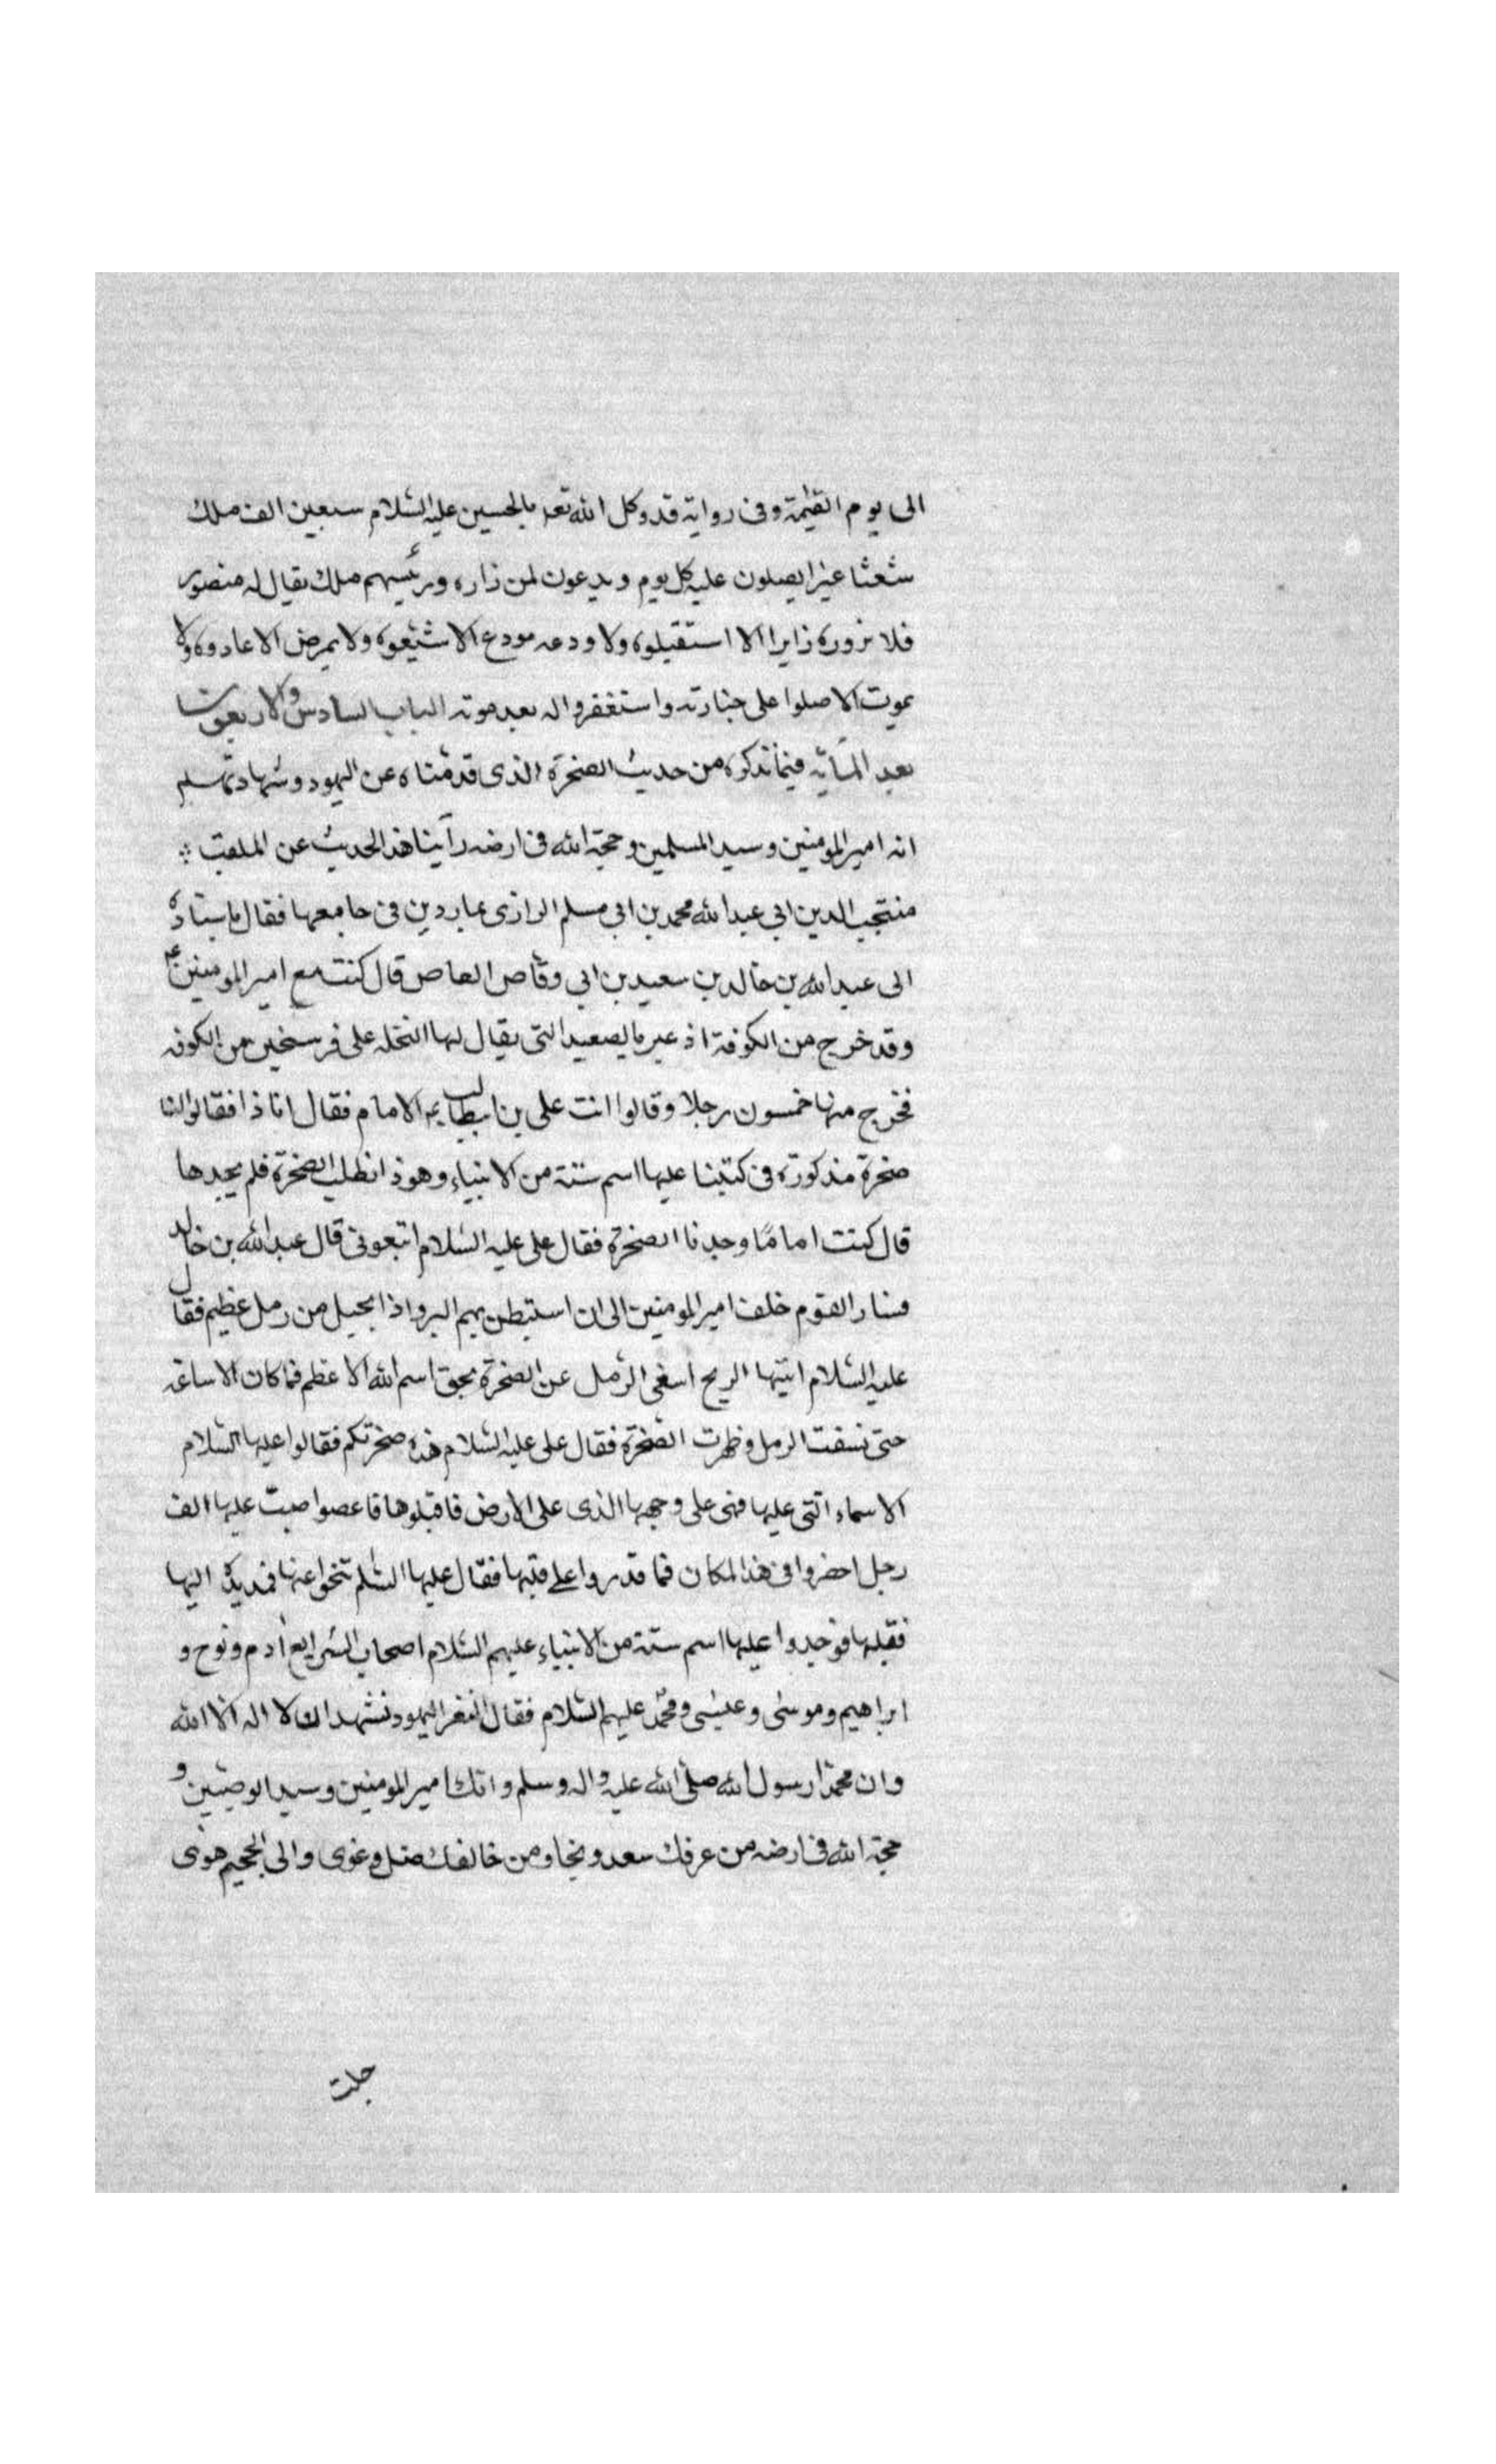 الى يوم القيٰمة وفى رواية قد وكل الله تعه بالحسين عليه السّلام سبعين الف ملك
شعثا غبرا يصلون عليه كل يوم ويدعون لمن زاره ورئيسهم ملك يقال له منصور
فلا يزوره زايرا الا استقبلوه ولا ودعه مودع الا شيّعوه ولا يمرض الا عادوه ولا
يموت الا صلوا على جنازته واستغفروا له بعد موته الباب السادس والاربعون
بعد المأيه فيما نذكره من حديث الصخرة الذى قدمناه عن اليهود وشهادتهم
انه امير المومنين وسيد المسلمين وحجة الله فى ارضه رأينا هذا الحديث عن الملقب
منتجب الدين ابي عبد الله محمد بن ابي مسلم الرازى بماردين فى جامعها فقال باسناده
الى عبد الله بن خالد بن سعيد بن ابي وقاص العاص قال كنت مع امير المومنين ع
وقد خرج من الكوفة اذ عبر بالصعيد التى يقال لها النخله على فرسخين من الكوفه
فخرج منها خمسون رجلا وقالوا انت على بن ابيطالب الامام فقال انا ذا فقالوا لنا
صخرة مذكورة فى كتبنا عليها اسم ستة من الانبياء وهو ذا نطلب الصخرة فلم يجدها
قال كنت اماما وجدنا الصخرة فقال على عليه السّلام اتبعونى قال عبد الله بن خالد
فسار القوم خلف امير المومنين الى ان استبطن بهم البر واذا بجبل من رمل عظيم فقال
عليه السّلام ايتها الريح اسفى الرّمل عن الصخرة بحق اسم الله الاعظم فما كان الا ساعة
حتى نسفت الرمل وظهرت الصّخرة فقال على عليه السّلام هذه صخرتكم فقالوا عليها السّلام
الاسماء التى عليها فهى على وجهها الذى على الارض فاقبلوها فاعصوا صبت عليها الف
رجل احضروا فى هذا المكان فما قدروا على قلبها فقال عليها السّلم تنحوا عنها فمد يده اليها
فقلبها فوجدوا عليها اسم ستة من الانبياء عليهم السّلام اصحاب الشرايع ادم ونوح و
ابراهيم وموسى وعيسى ومحمّد عليهم السّلام فقال النفر اليهود نشهد ان لا اله الا الله
وان محمدا رسول الله صلّى الله عليه واله وسلم وانك امير المومنين وسيد الوصيّين و
حجة الله فى ارضه من عرفك سعد ونجا ومن خالفك ضل وغوى والى الجحيم هوى
جلت